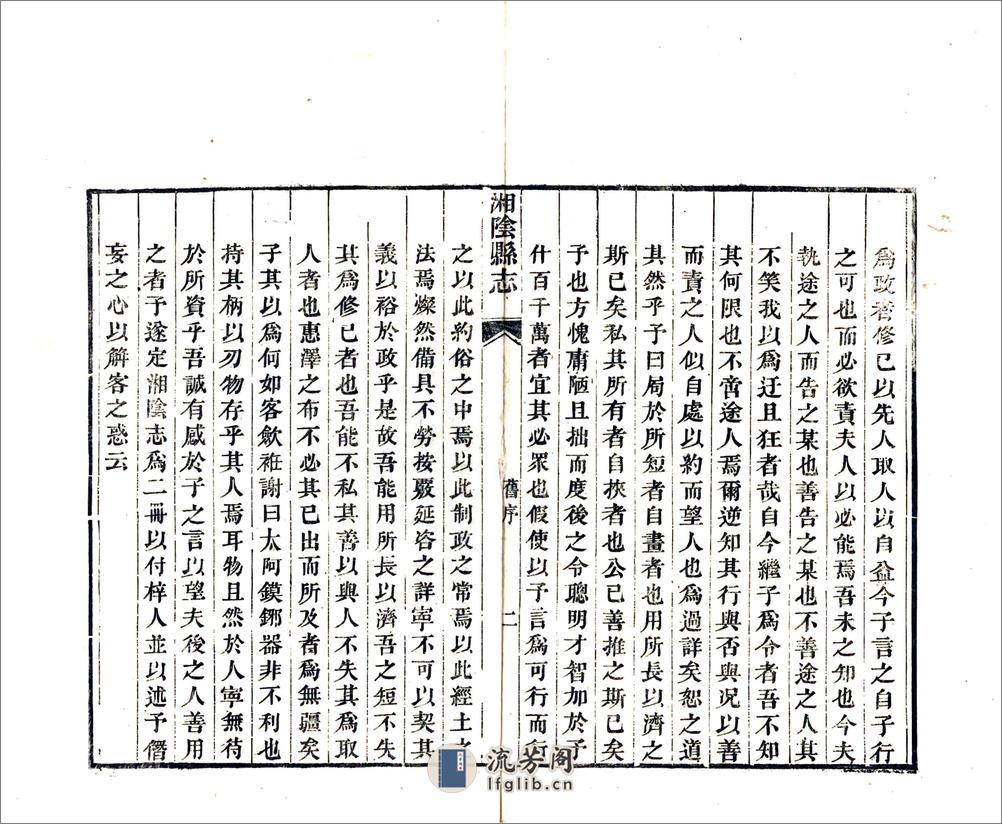 為政者修己以先人取人以自益今子言之自子行
之可也而必欲責夫人以必能焉吾未之知也今夫
執途之人而告之某也善告之某也不善途之人其
不笑我以為迂且狂者哉自今繼子為令者吾不知
其何限也不啻途人焉爾逆知其行與否與况以善
而責之人似自處以約而望人也為過詳矣恕之道
其然乎予曰局於所短者自畫者也用所長以濟之
斯已矣私其所有者自挾者也公己善推之斯已矣
予也方愧庸陋且拙而度後之令聰明才智加於予
什百千萬者宜其必眾也假使以予言為可行而行
湘陰縣志
舊序
二
之以此約俗之中焉以此制政之常焉以此經土之
法焉燦然備具不勞按覈延咨之詳寧不可以契其
義以裕於政乎是故吾能用所長以濟吾之短不失
其為修己者也吾能不私其善以與人不失其為取
人者也惠澤之布不必其已出而所及者為無疆矣
子其以為何如客歛袵謝曰太阿鏌鎁器非不利也
持其柄以刃物存乎其人焉耳物且然於人寧無待
於所資乎吾誠有感於子之言以望夫後之人善用
之者予遂定湘陰志為二冊以付梓人並以述予僭
妄之心以解客之惑云
流芳阁
lfglib.cn